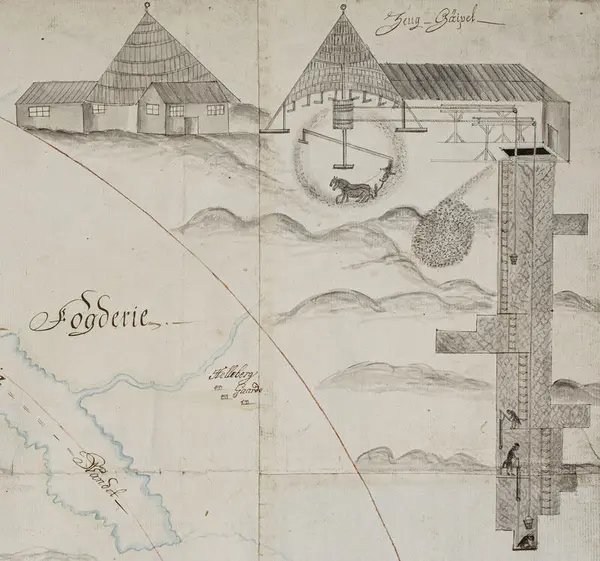 Zeug-Gäipel
Fogderie
Helleberg
Gaarde
Vandet